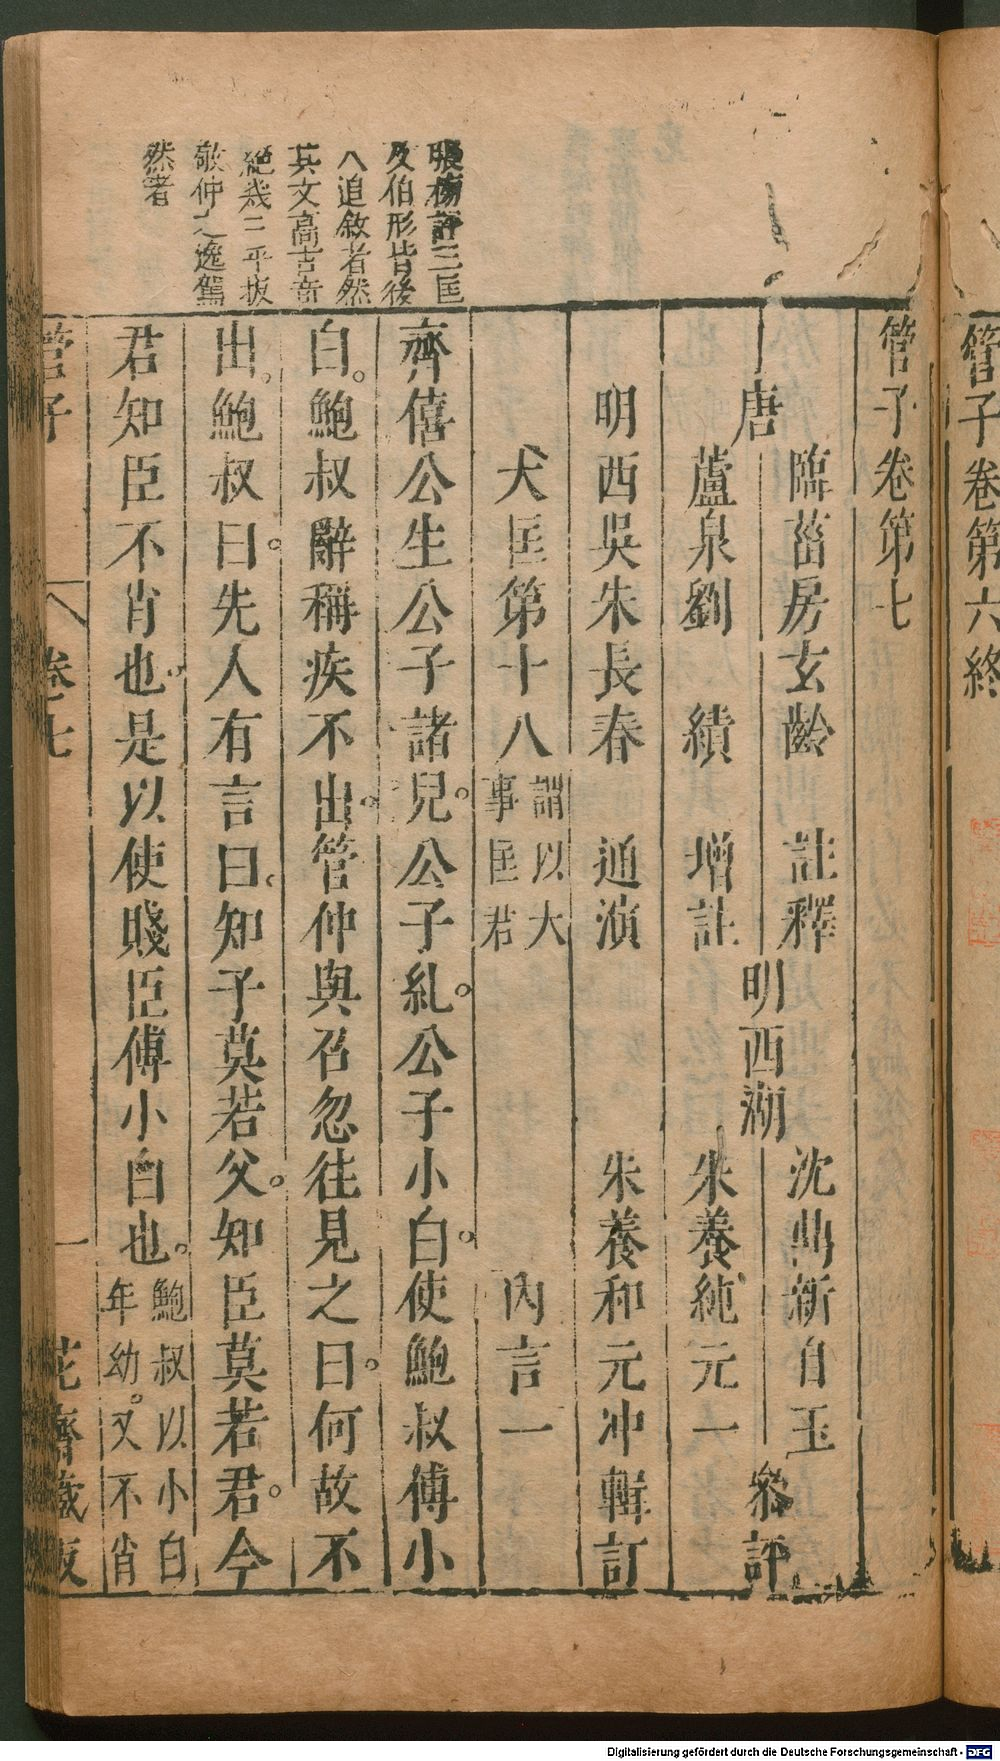 管子卷第六終
管子卷第七
唐
臨菑房玄齡　註釋
蘆泉劉　績　增註
明西湖
沈鼎新自玉
朱養純元一
參評
明西吳朱長春　通演　　朱養和元冲輯訂
大匡第十八
謂以大
事匡君
內言一
齊僖公生公子諸兒。公子糺。公子小白。使鮑叔傅小
白。鮑叔辭稱疾不出。管仲與召忽往見之曰。何故不
出。鮑叔曰。先人有言曰。知子莫若父。知臣莫若君。今
君知臣不肖也。是以使賤臣傅小白也。
鮑叔以小白
年幼。又不肖
張榜評三匡
及伯形皆後
人追敘者然
其文高古奇
絕幾二乎扳
敬仲之逸駕
然者
管子
卷七
一
花齋藏板
Digitalisierung gefördert durch die Deutsche Forschungsgemeinschaft - DFG